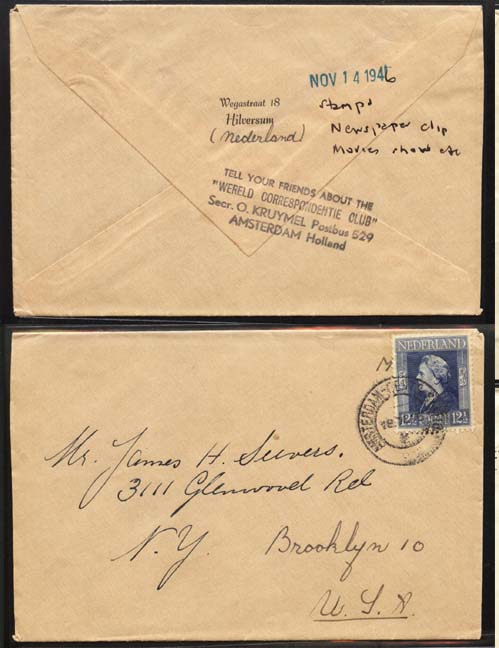 NOV 14 1946
Stamps
Newspaper clip
Movies show etc
Wegastraat 18
Hilversum
(Nederland)
TELL YOUR FRIENDS ABOUT THE
"WERELD CORRESPONDENTIE CLUB"
Secr. O. KRUYMEL Postbus 529
AMSTERDAM Holland
NEDERLAND
12½ 12½
AMSTERDAM
Mr. James H. Sievers.
3111 Glenwood Rd
N.Y. Brooklyn 10
U.S.A.